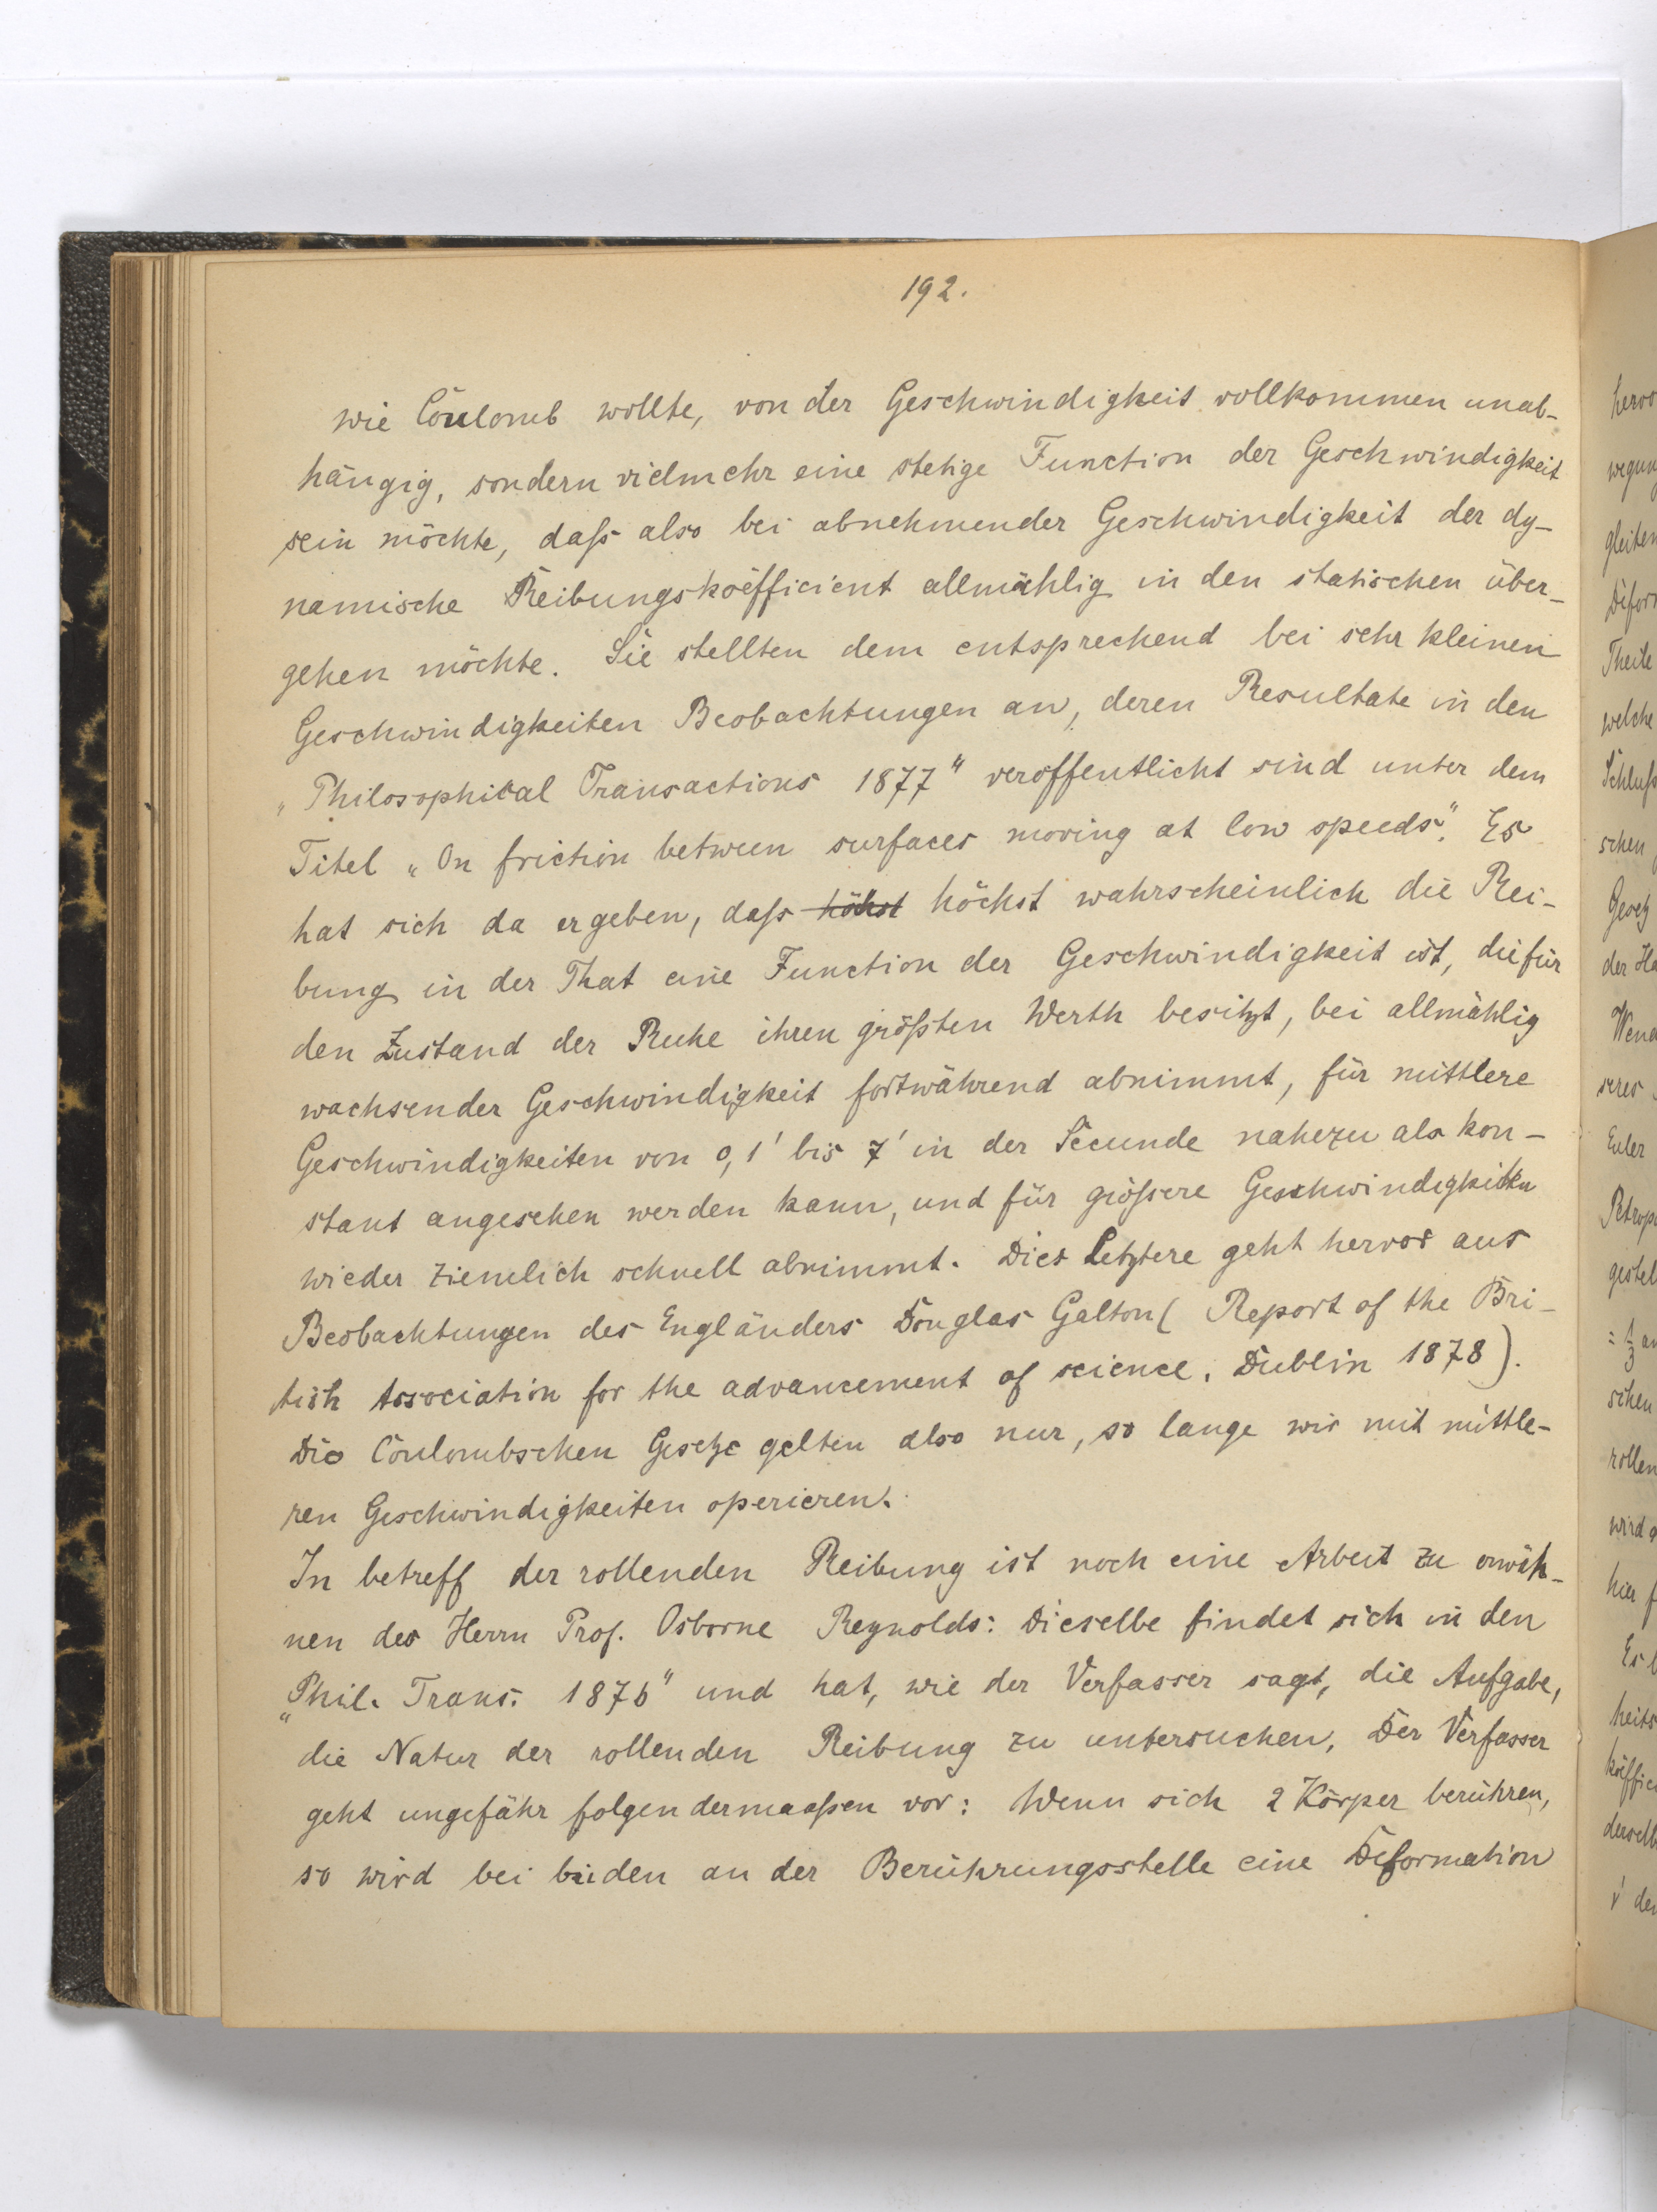 192.
wie Coulomb wollte, von der Geschwindigkeit vollkommen unab-
hängig, sondern vielmehr eine stetige Function der Geschwindigkeit
sein möchte, daß also bei abnehmender Geschwindigkeit der dy-
namische Reibungskoëfficient allmählig in den statischen über-
gehen möchte. Sie stellten dem entsprechend bei sehr kleinen
Geschwindigkeiten Beobachtungen an, deren Resultate in den
„Philosophical Transactions 1877" veroffentlicht sind unter dem
Titel „On friction between surfaces moving at low speeds". Es
hat sich da ergeben, daß höhst höchst wahrscheinlich die Rei-
bung in der That eine Function der Geschwindigkeit ist, die für
den Zustand der Ruhe ihren größten Werth besitzt, bei allmählig
wachsender Geschwindigkeit fortwährend abnimmt, für mittlere
Geschwindigkeiten von 0,1' bis 7' in der Secunde nahezu als kon-
stant angesehen werden kann, und für größere Geschwindigkeiten
wieder ziemlich schnell abnimmt. Dies Letztere geht hervor aus
Beobachtungen des Engländers Douglas Galton ( Report of the Bri-
tish Association for the advancement of science. Dublin 1878).
Die Coulombschen Gesetze gelten also nur, so lange wir mit mittle-
ren Geschwindigkeiten operieren.
In betreff der rollenden Reibung ist noch eine Arbeit zu erwäh-
nen des Herrn Prof. Osborne Reynolds: Dieselbe findet sich in den
„Phil. Trans. 1876" und hat, wie der Verfasser sagt, die Aufgabe,
die Natur der rollenden Reibung zu untersuchen, Der Verfasser
geht ungefähr folgendermaaßen vor: Wenn sich 2 Körper berühren,
so wird bei beiden an der Berührungsstelle eine Deformation